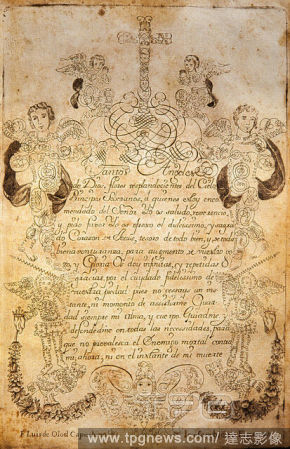 Santos Angeles
de Dios, flores resplandecientes del Cielo
Principes Soberanos, a quienes estoy enco
mendado del Señor. Yo os saludo, reverencio,
y para honor os ofresco el dulcissimo, y sagrado
Corason de Jesus, tesoro de todo bien, y
bienaventuranza, para augmento de vuestro
y Gloria. Os doy infinitas, y repetidas
gracias, por el cuidado fidelissimo de
vuestra piedad; pues no cessais un ins
tante, ni momento de assistirme. Guar
dad siempre mi Alma, y cuerpo. Guiadme, y
defendedme en todas las necessidades, para
que no prevalesca el Enemigo mortal contra
mi, ahora, ni en el instante de mi muerte
F. Luis de Olod Cap
www.tpgnews.com / 達志影像